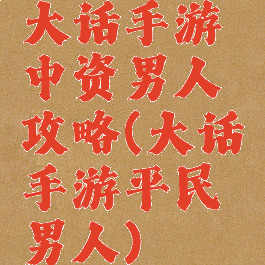 大话手游
中资男人
攻略(大话
手游平民
男人)